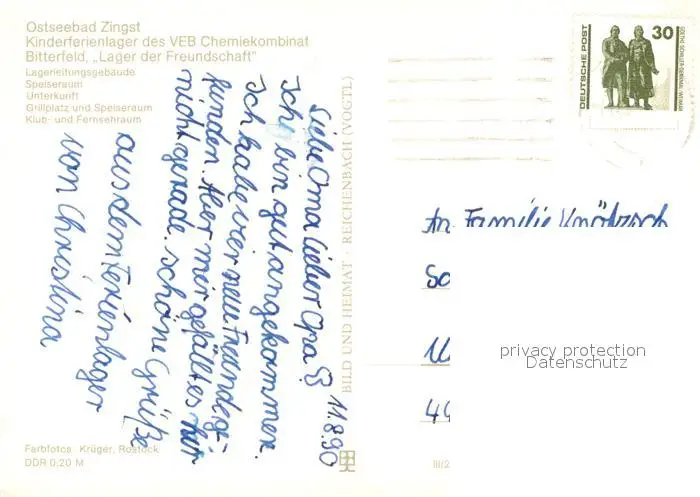 Ostseebad Zingst
Kinderferienlager des VEB Chemiekombinat
Bitterfeld, „Lager der Freundschaft"
Lagerleitungsgebäude
Speiseraum
Unterkunft
Grillplatz und Speiseraum
Klub- und Fernsehraum
11.8.90
Liebe Oma Lieber Opa
Ich bin gut angekommen.
Ich habe vier neue Freunde ge-
funden. Aber mir gefällt es hir
nicht gerade. schöne Grüße
aus dem Ferienlager
von Christina
Farbfotos: Krüger, Rostock
DDR 0,20 M
BILD UND HEIMAT · REICHENBACH (VOGTL)
III/2
DEUTSCHE POST
30
GOETHE-SCHILLER-DENKMAL WEIMAR
An Familie
privacy protection
Datenschutz